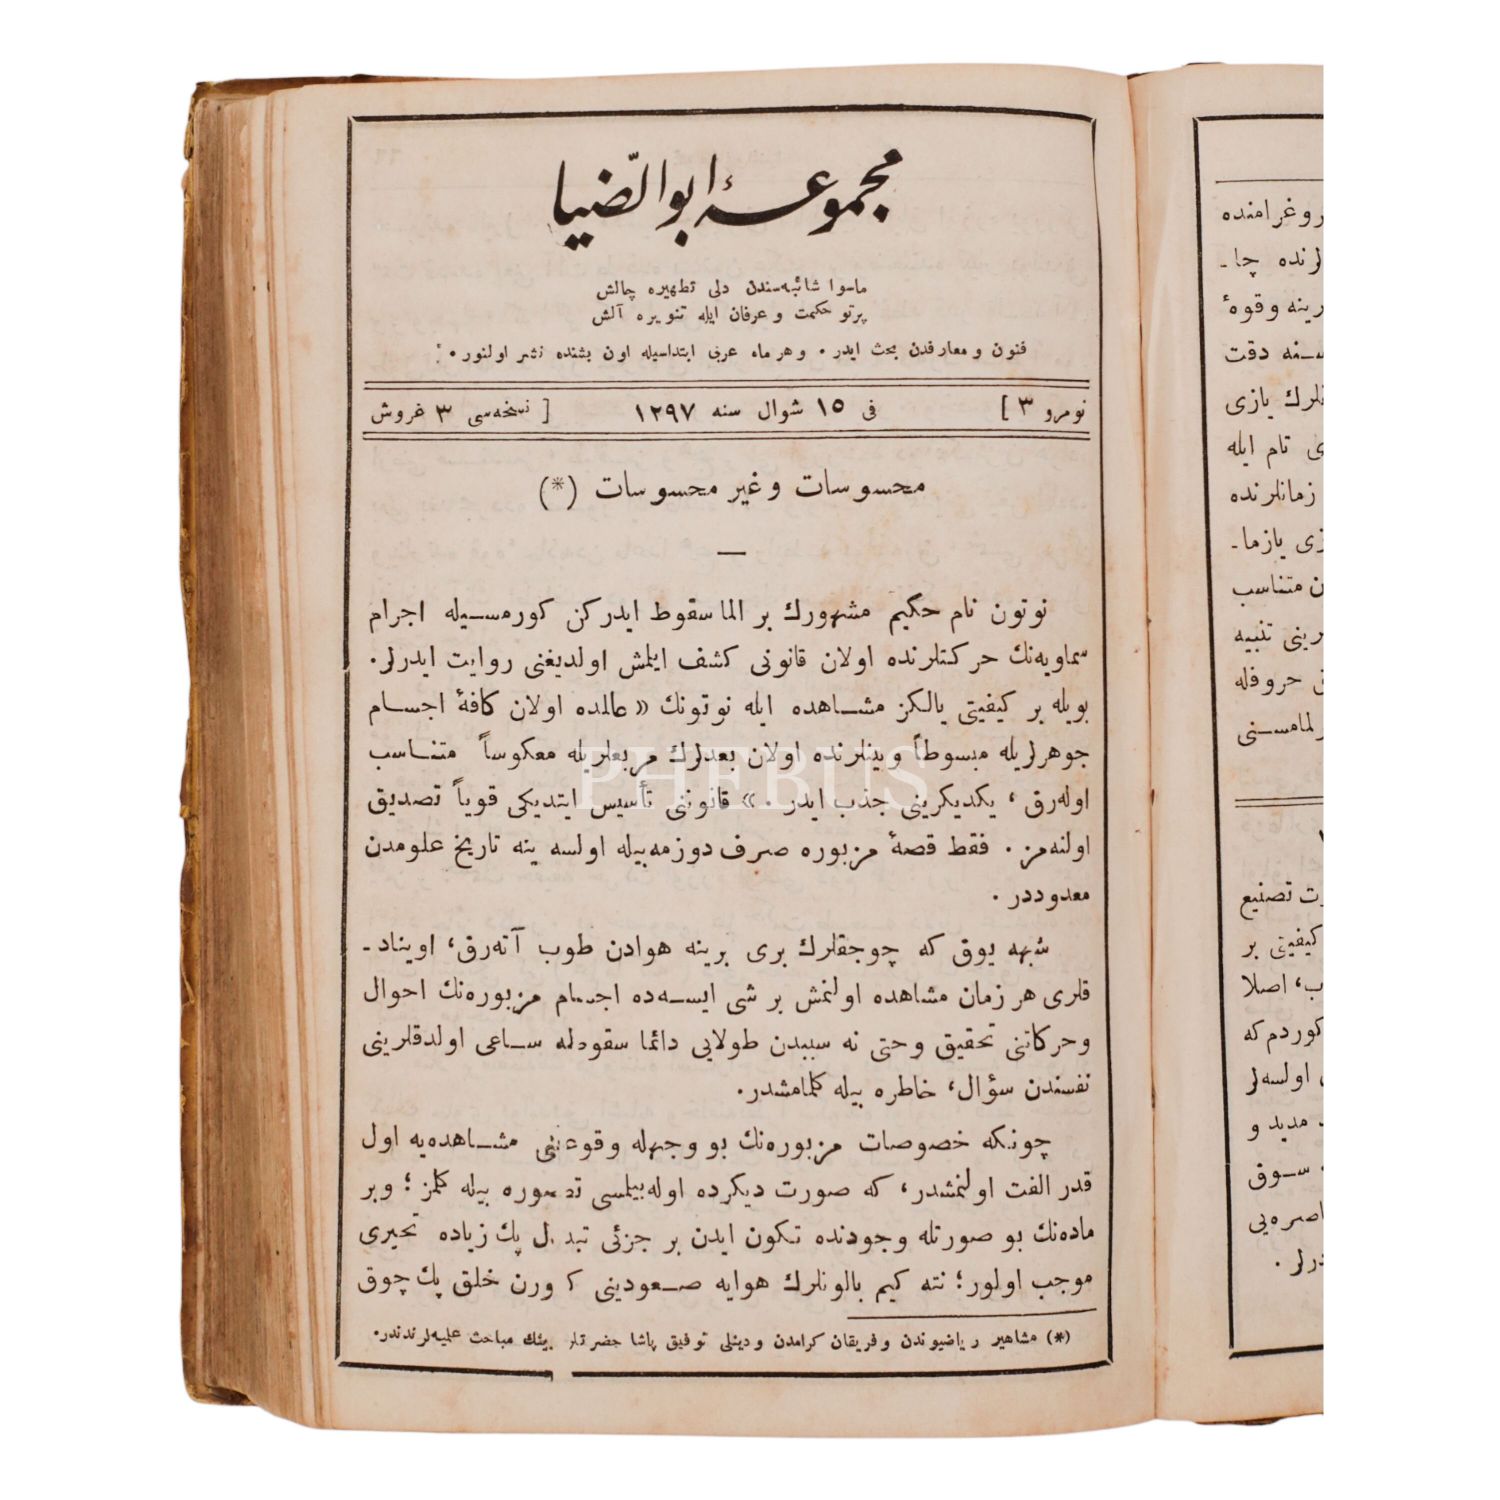 مجموعهٔ ابوالضّيا
ماسوا شائبه‌سندن دلی تطهيره چالش
پرتو حكمت و عرفان ايله تنويره آلش
فنون و معارفدن بحث ايدر. و هر ماه عربی ابتداسيله اون بشنده نشر اولنور.
نومرو ٣ ] فی ١٥ شوال سنه ١٢٩٧ [ نسخه‌سی ٣ غروش
محسوسات و غير محسوسات (*)
نوتون نام حكيم مشهورك بر الما سقوط ايدركن كورمسيله اجرام
سماويه‌نك حركتلرنده اولان قانونی كشف ايلمش اولديغنی روايت ايدرلر.
بويله بر كيفيتی يالكز مشاهده ايله نوتونك « عالمده اولان كافهٔ اجسام
جوهرلريله مبسوطاً و بينلرنده اولان بعدلرك مربعلريله معكوساً متناسب
اوله‌رق ، يكديكرينی جذب ايدر . » قانوننی تأسيس ايتديكی قوياً تصديق
اولنه‌مز . فقط قصهٔ مزبوره صرف دوزمه بيله اولسه ينه تاريخ علومدن
معدوددر .
شبهه يوق كه چوجقلرك بری برينه هوادن طوب آته‌رق، اويناد-
قلری هر زمان مشاهده اولنمش بر شی ايسه‌ده اجسام مزبوره‌نك احوال
وحركاتنی تحقيق و حتی نه سببدن طولايی دائما سقوطه ساعی اولدقلرينی
نفسندن سؤال، خاطره بيله كلمامشدر.
چونكه خصوصات مزبوره‌نك بو وجهله وقوعنی مشاهده‌يه اول
قدر الفت اولنمشدر، كه صورت ديكرده اوله‌بيلمسی تصوره بيله كلمز ؛ و بر
ماده‌نك بو صورتله وجودنده تكون ايدن بر جزئی تبدل پك زياده تحيری
موجب اولور؛ نته كيم بالونلرك هوايه صعودينی كورن خلق پك چوق
(*) مشاهير رياضيوندن و فريقان كرامدن وديناى توفيق پاشا حضرتلرينك مباحث علميه‌لرندندر.
PHEBUS
روغرامنده
لرنده چا-
رينه وقوهٔ
سنه دقت
قلرك يازی
ی تام ايله
زمانلرنده
زی يازما-
ن متناسب
رينی تنبيه
ق حروفله
لمامسنی
ت تصنيع
كيفيتی بر
ب، اصلا
كوردم كه
اولسه‌لر
مديد و
سوق
اصره‌يی
درلر .